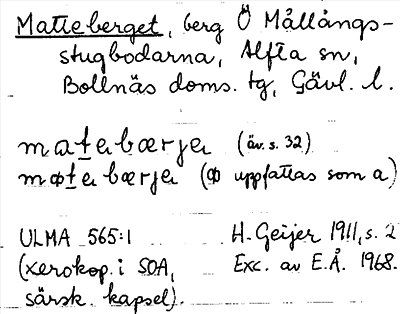 Matteberget, berg Ö Mållångs-
stugbodarna, Alfta sn,
Bollnäs doms. tg, Gävl. l.
matebærjeı (äv. s. 32)
møteıbærjeı (Ø uppfattas som a)
ULMA 565:1 H. Geijer 1911, s. 2
(xerokop. i SOA, Exc. av E.Å. 1968.
särsk. kapsel).